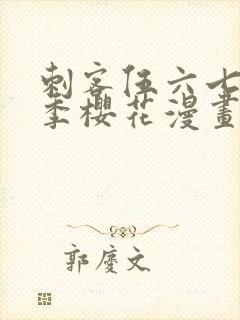 刺客伍六七
季櫻花漫畫
郭慶文